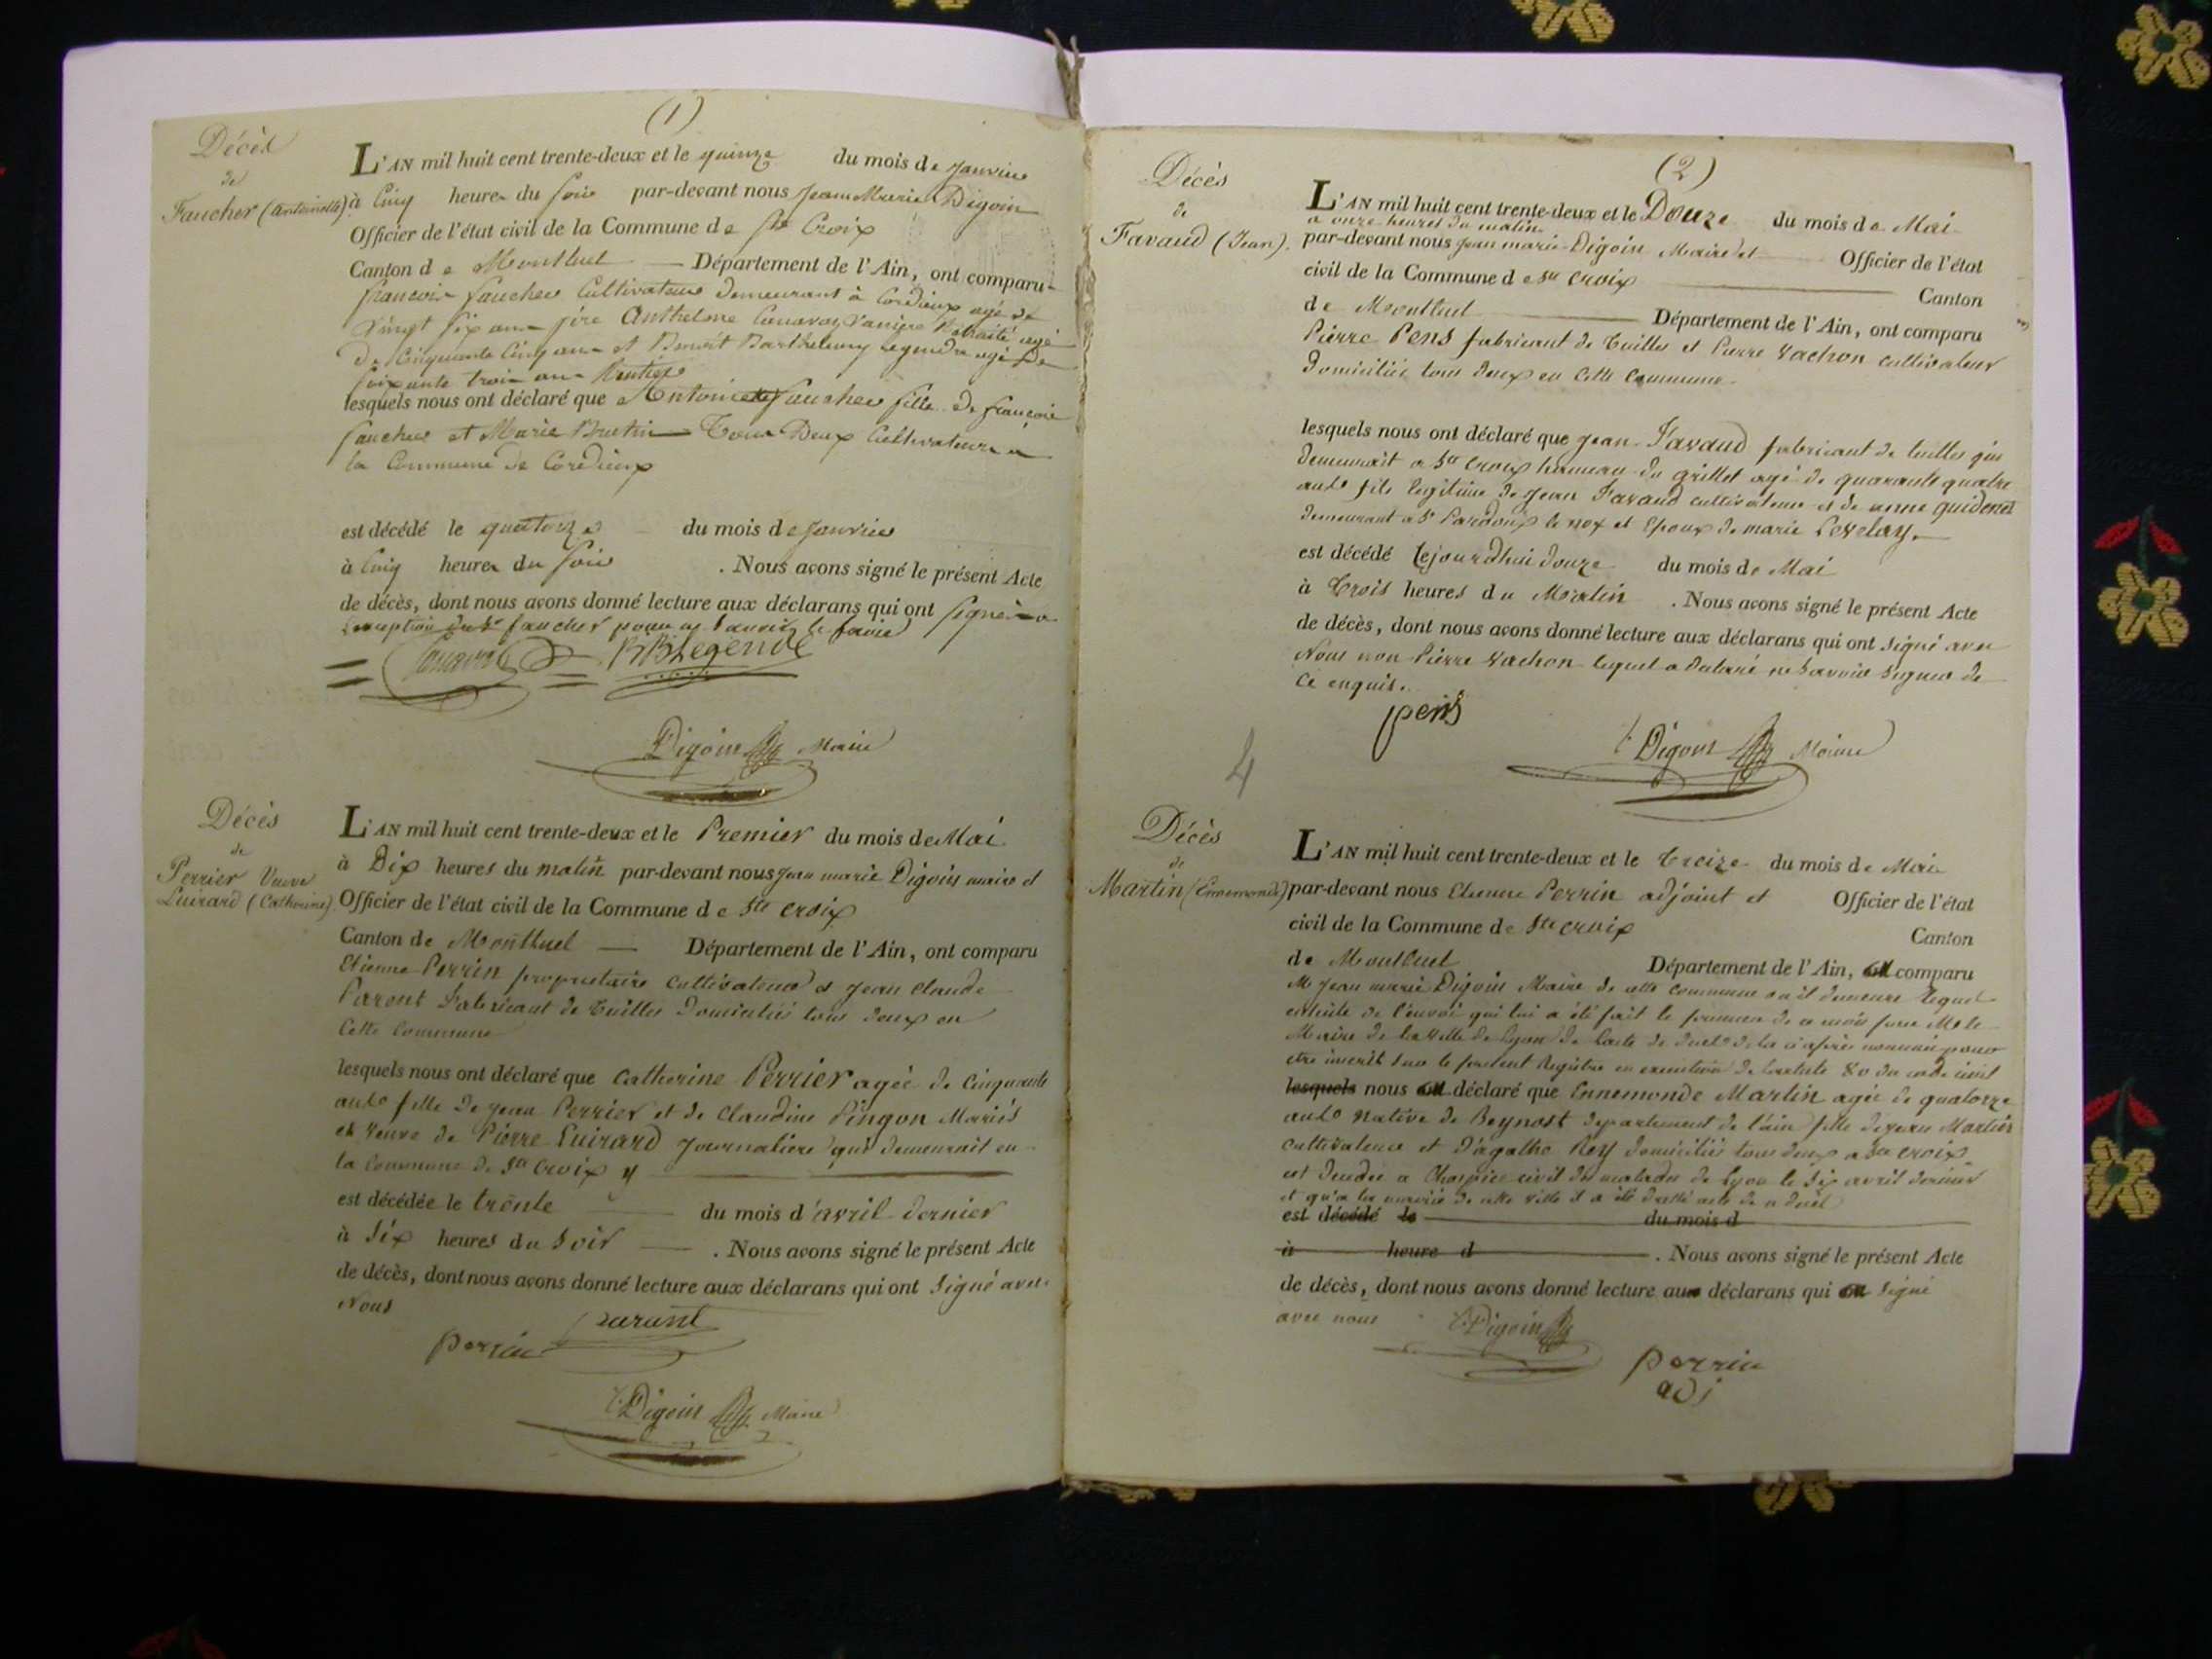 (1)
Décès
de
Faucher (Antoinette)
L'AN mil huit cent trente-deux et le quinze du mois de Janvier
à Cinq heures du soir par-devant nous Jean Marie Digoin
Officier de l'état civil de la Commune de Ste Croix
Canton de Montluel Département de l'Ain, ont comparu
françois faucher Cultivateur demeurant à Cordieux agé de
vingt six ans père Anthelme retraité agé
de Cinquante Cinq ans et Benoit Barthelemy Legendre agé de
soixante trois ans Rentier
lesquels nous ont déclaré que Antoinette faucher fille de françois
faucher et Marie tous Deux Cultivateurs a
la Commune de Cordieux
est décédé le quatorze du mois de Janvier
à Cinq heures du soir . Nous avons signé le présent Acte
de décès, dont nous avons donné lecture aux déclarans qui ont signé a
l'exception du dt faucher pour ne savoir le faire
BBLegendre
Digoin Maire
Décès
de
Perrier Veuve
Luirard (Catherine).
L'AN mil huit cent trente-deux et le Premier du mois de Mai
à Dix heures du matin par-devant nous jean marie Digoin maire et
Officier de l'état civil de la Commune de Ste Croix
Canton de Montluel Département de l'Ain, ont comparu
Etienne Perrin propriétaire cultivateur et jean claude
Parent Fabricant de tuilles Domiciliés tous deux en
cette commune
lesquels nous ont déclaré que Catherine Perrier agée de cinquante
ans fille de jean Perrier et de Claudine Pingon Mariés
et veuve de Pierre Luirard journaliere qui demeurait en
la commune de Ste Croix
est décédée le trente du mois d'avril dernier
à Six heures du Soir . Nous avons signé le présent Acte
de décès, dont nous avons donné lecture aux déclarans qui ont signé avec
Nous
parent
perrin
Digoin Maire
(2)
Décès
de
Favaud (Jean).
L'AN mil huit cent trente-deux et le Douze du mois de Mai
a onze heures du matin
par-devant nous jean marie Digoin Maire et Officier de l'état
civil de la Commune de Ste Croix Canton
de Montluel Département de l'Ain, ont comparu
Pierre Pens fabricant de tuilles et Pierre Vachon cultivateur
Domiciliés tous deux en cette commune
lesquels nous ont déclaré que jean Favaud fabricant de tuilles qui
demeurait a Ste Croix hameau du grillet agé de quarante quatre
ans fils légitime de jean Favaud cultivateur et de anne
demeurant a St Pardoux le et Epoux de marie
est décédé cejourdhui douze du mois de Mai
à trois heures du Matin . Nous avons signé le présent Acte
de décès, dont nous avons donné lecture aux déclarans qui ont signé avec
Nous non Pierre Vachon lequel a déclaré ne savoir signer de
ce enquis.
pens
Digoin Maire
4
Décès
de
Martin (Ennemonde)
L'AN mil huit cent trente-deux et le treize du mois de Mai
par-devant nous Etienne Perrin adjoint et Officier de l'état
civil de la Commune de Ste Croix Canton
de Montluel Département de l'Ain, comparu
M jean marie Digoin Maire de cette commune où il demeure lequel
ensuite de l'envoi qui lui a été fait le premier de ce mois par M le
Maire de la ville de Lyon de l'acte de décès de la ci après nommée pour
etre inscrit sur le présent Registre en exécution de l'article 80 du code civil
lesquels nous déclaré que Ennemonde Martin agée de quatorze
ans native de Beynost departement de l'ain fille de jean Martin
cultivateur et d'agathe Rey domiciliés tous deux a Ste Croix
est décédée a l'hospice civil des malades de Lyon le six avril dernier
et qu'a la mairie de cette ville il a été dressé acte de ce décès
est décédé le du mois d
à heure d . Nous avons signé le présent Acte
de décès, dont nous avons donné lecture au déclarans qui signé
avec nous
Digoin
perrin
adj